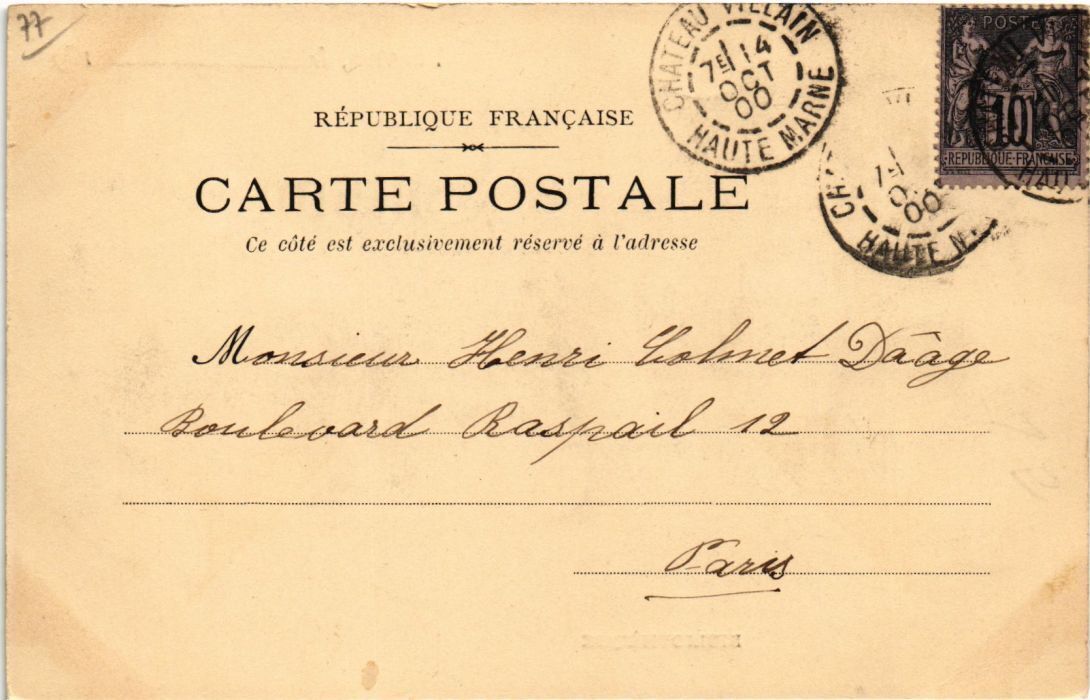 77
CHATEAU VILLAIN
7E 14
OCT
00
HAUTE MARNE
POSTES
10
REPUBLIQUE FRANÇAISE
RÉPUBLIQUE FRANÇAISE
CARTE POSTALE
Ce côté est exclusivement réservé à l'adresse
00
HAUTE
Monsieur Henri Colmet Dâage
Boulevard Raspail 12
Paris